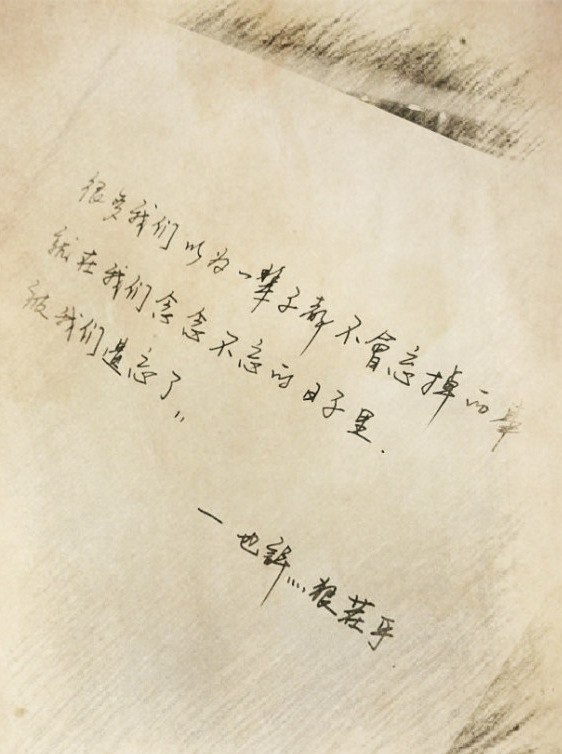 很多我们以为一辈子都不會忘掉的事
就在我们念念不忘的日子里.
被我们遗忘了"
一也許…狠茬乎